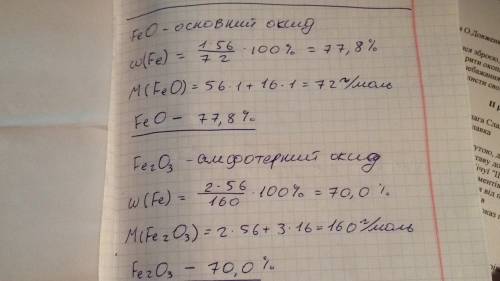 FeO - основний оксид
w(Fe) = 1·56/72 · 100% = 77,8%
M(FeO) = 56·1 + 16·1 = 72 г/моль
FeO - 77,8%
Fe₂O₃ - амфотерний оксид
w(Fe) = 2·56/160 · 100% = 70,0%
M(Fe₂O₃) = 2·56 + 3·16 = 160 г/моль
Fe₂O₃ - 70,0%
О.Довжен